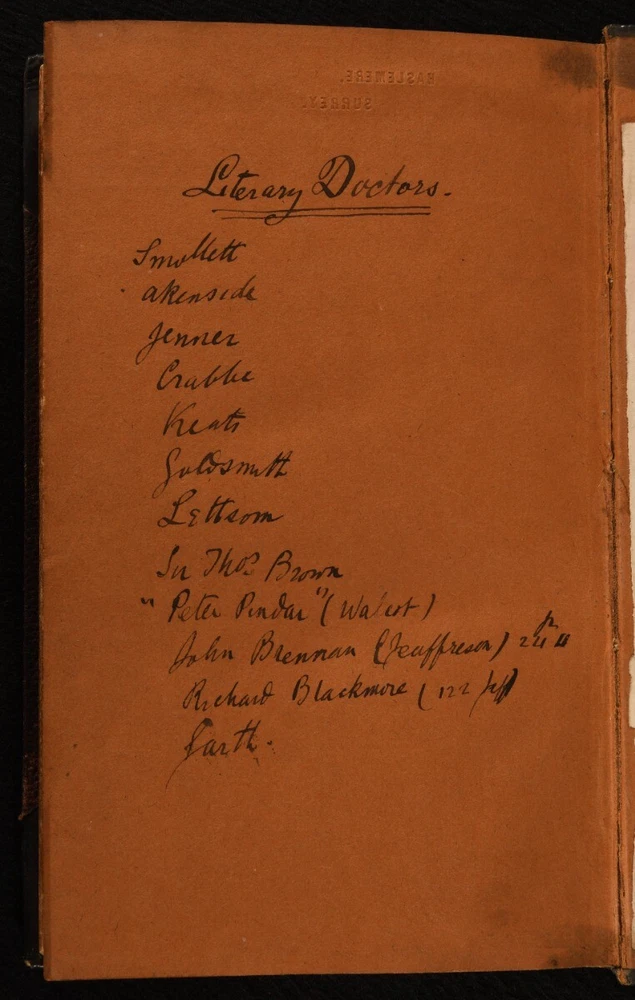 HASLEMERE.
SURREY.
Literary Doctors.
Smollett
Akenside
Jenner
Crabbe
Keats
Goldsmith
Lettsom
Sir Thos Brown
"Peter Pindar" (Walcot)
John Brennan (Jeaffreson)
Richard Blackmore (122 Jeff)
Garth.